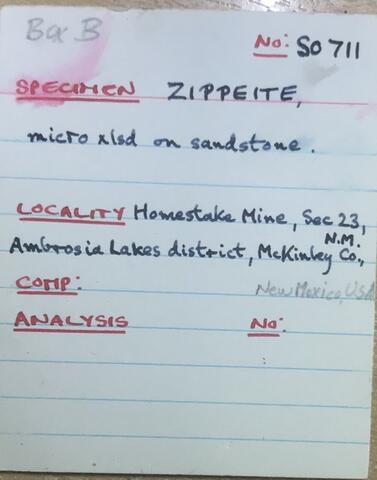 Box B
No: SO 711
SPECIMEN ZIPPEITE,
micro xlsd on sandstone.
LOCALITY Homestake Mine, Sec 23,
Ambrosia Lakes district, McKinley Co., N.M.
COMP: New Mexico, USA
ANALYSIS No: